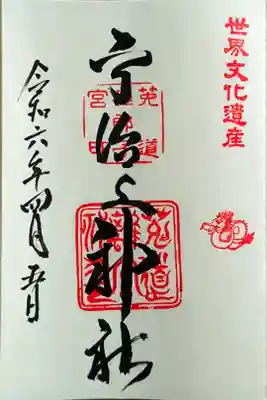 世界文化遺産
宇治上神社
令和六年四月五日